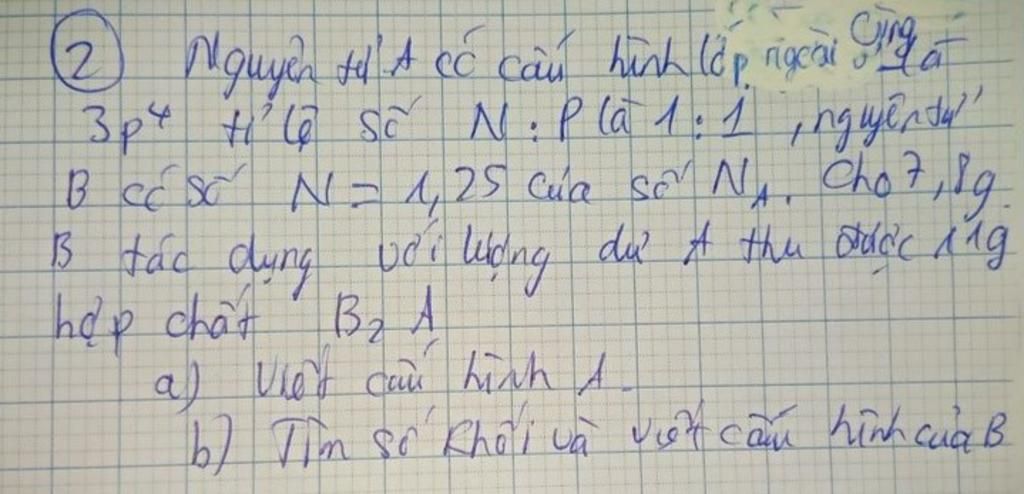 ② Nguyên tử A có cấu hình lớp ngoài cùng là
3p⁴ tỉ lệ số N : P là 1 : 1 , nguyên tử
B có số N = 1,25 của số N_A. Cho 7,8g
B tác dụng với lượng dư A thu được 11g
hợp chất B₂A
a) Viết cấu hình A.
b) Tìm số khối và viết cấu hình của B